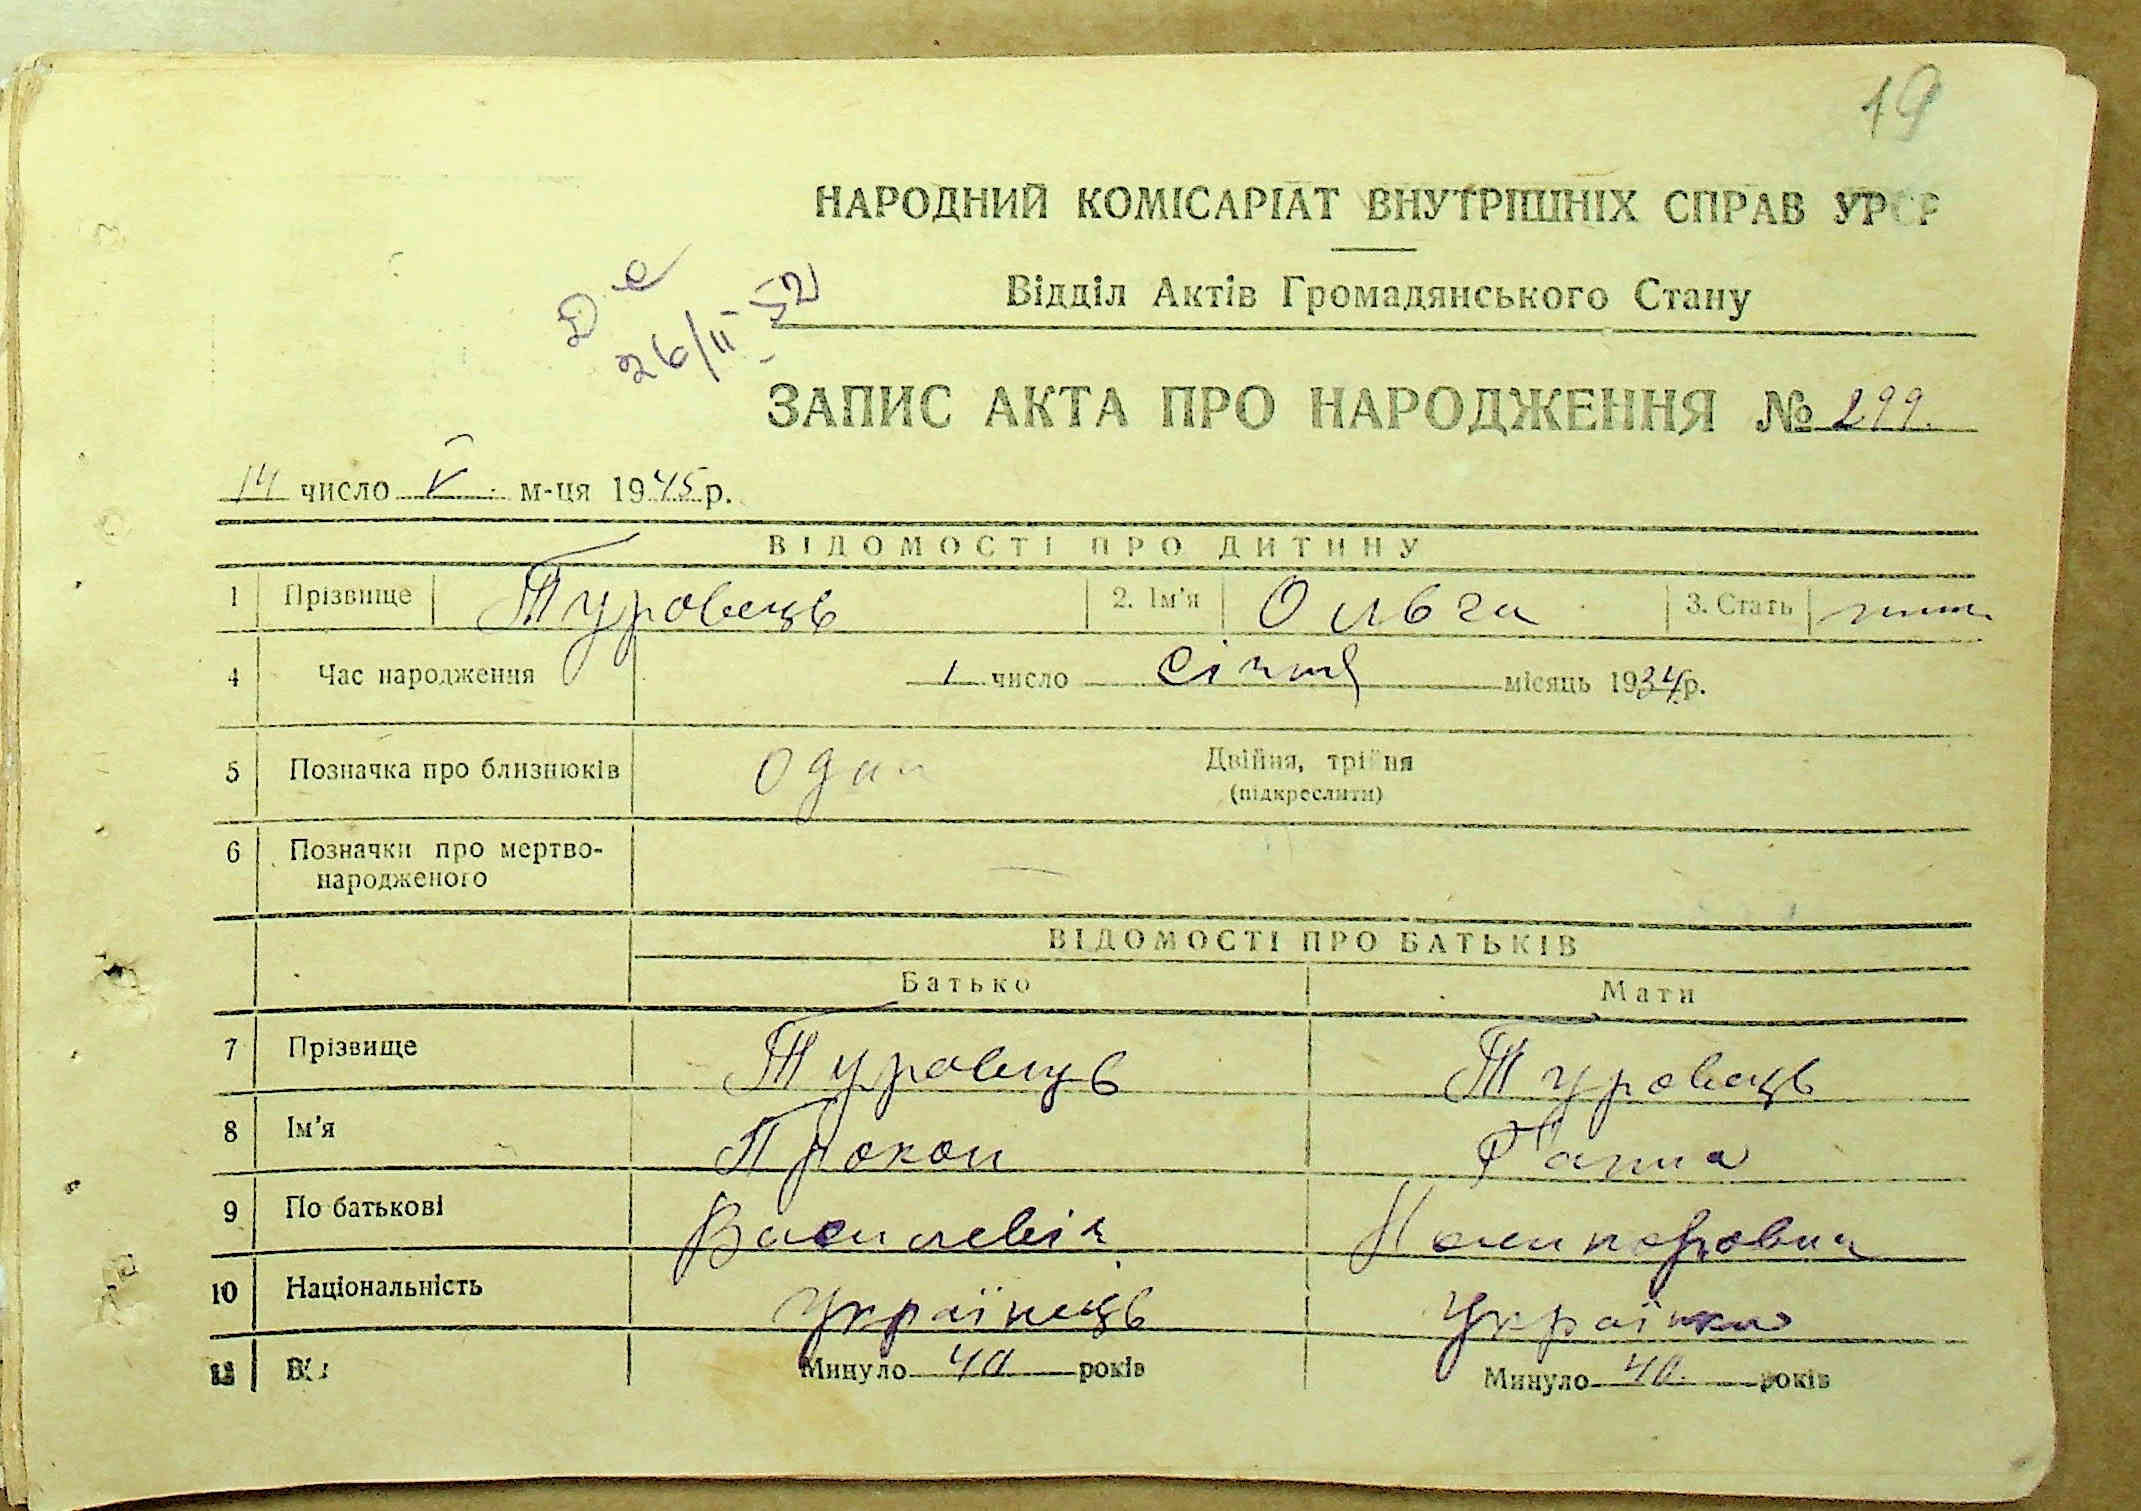 19
НАРОДНИЙ КОМІСАРІАТ ВНУТРІШНІХ СПРАВ УРСР
Відділ Актів Громадянського Стану
26/II 52
ЗАПИС АКТА ПРО НАРОДЖЕННЯ № 299.
14 число V м-ця 1945 р.
ВІДОМОСТІ ПРО ДИТИНУ
1 Прізвище Туровець 2. Ім'я Ольга 3. Стать
4 Час народження 1 число січня місяць 1934 р.
5 Позначка про близнюків один Двійня, трійня
(підкреслити)
6 Позначки про мертво-
народженого —
ВІДОМОСТІ ПРО БАТЬКІВ
Батько Мати
7 Прізвище Туровець Туровець
8 Ім'я Прокоп Ганна
9 По батькові Василевіч
10 Національність Українець Українка
11 Минуло 40 років Минуло 40 років